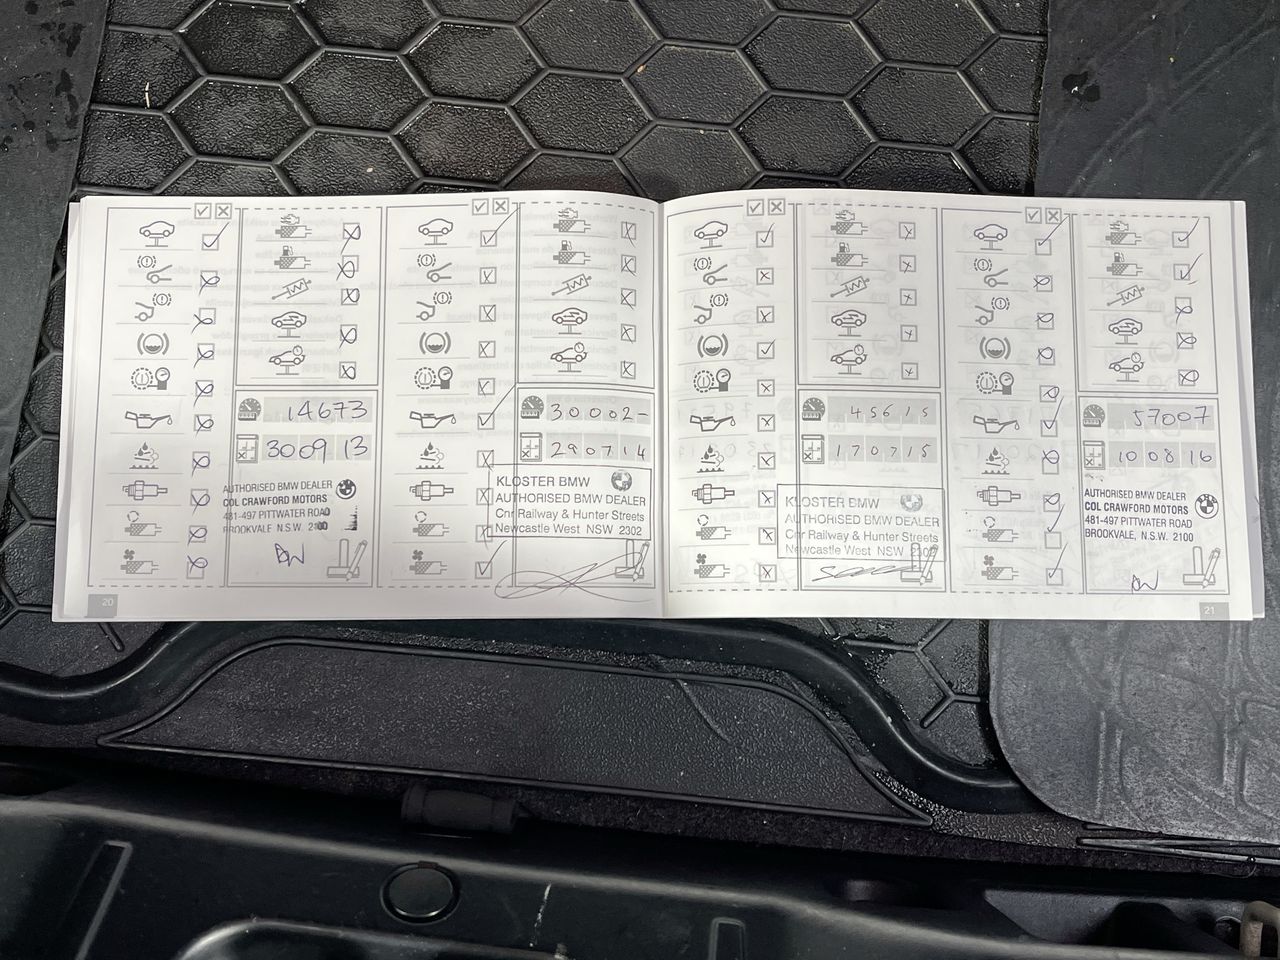 14673
300913
AUTHORISED BMW DEALER
COL CRAWFORD MOTORS
481-497 PITTWATER ROAD
BROOKVALE N.S.W. 2100
20
30002-
290714
KLOSTER BMW
AUTHORISED BMW DEALER
Cnr Railway & Hunter Streets
Newcastle West NSW 2302
45615
170715
KLOSTER BMW
AUTHORISED BMW DEALER
Cnr Railway & Hunter Streets
Newcastle West NSW 2302
57007
100816
AUTHORISED BMW DEALER
COL CRAWFORD MOTORS
481-497 PITTWATER ROAD
BROOKVALE, N.S.W. 2100
21